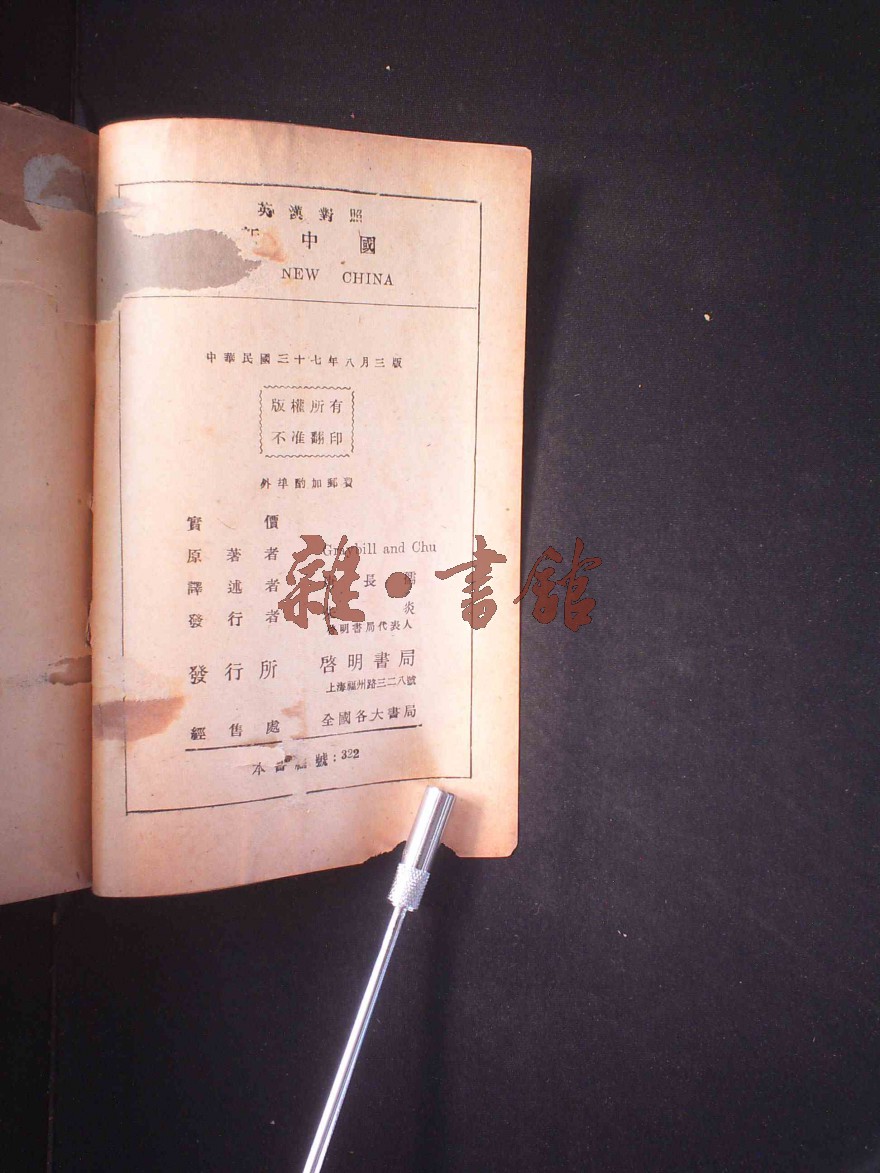 英漢對照
中國
NEW CHINA
中華民國三十七年八月三版
版權所有
不准翻印
外埠酌加郵費
實價
原著者 Graybill and Chu
譯述者 長
發行者 炎
啓明書局代表人
發行所 啓明書局
上海福州路三二八號
經售處 全國各大書局
本書編號：322
雜·書館